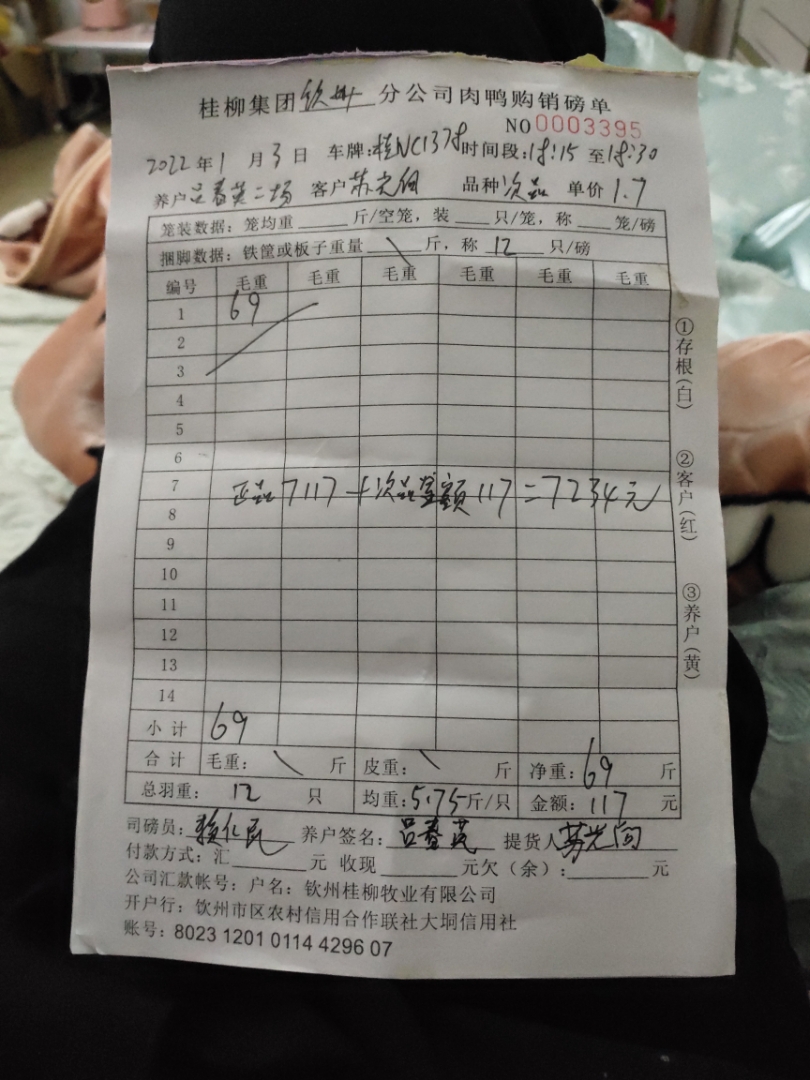 桂柳集团钦州分公司肉鸭购销磅单
NO 0003395
2022年1月3日 车牌:桂NC1378 时间段:18:15至18:30
养户吕春英二场 客户苏光向 品种次品 单价1.7
笼装数据:笼均重 斤/空笼,装 只/笼,称 笼/磅
捆脚数据:铁筐或板子重量 \ 斤,称12只/磅
编号 毛重 毛重 毛重 毛重 毛重 毛重
1 69
2
3
4
5
6
7
正品7117+次品金额117=7234元
8
9
10
11
12
13
14
小计 69
合计 毛重:\ 斤 皮重:\ 斤 净重:69斤
总羽重:12只 均重:5.75斤/只 金额:117元
司磅员:赖仁民 养户签名:吕春英 提货人苏光向
付款方式:汇 元 收现 元欠(余): 元
公司汇款帐号:户名:钦州桂柳牧业有限公司
开户行:钦州市区农村信用合作联社大垌信用社
账号:8023 1201 0114 4296 07
①存根(白)
②客户(红)
③养户(黄)